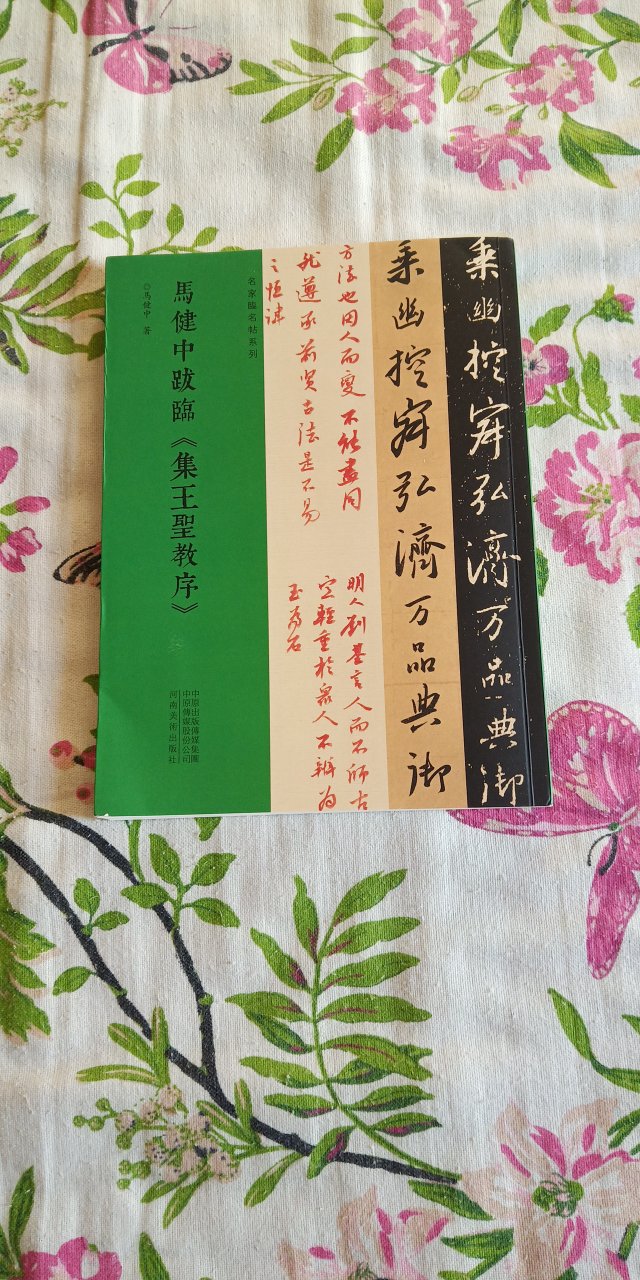 乘幽控寂弘濟万品典御
乘幽控寂弘濟万品典御
方法也因人而變不能盡同
遵承前贤古法是不易
之恒
明人刘基言人而不師古
定輕重於衆人不辨為
玉為石
名家臨名帖系列
馬健中跋臨《集王聖教序》
◎馬健中 著
中原出版傳媒集團
中原傳媒股份公司
河南美術出版社